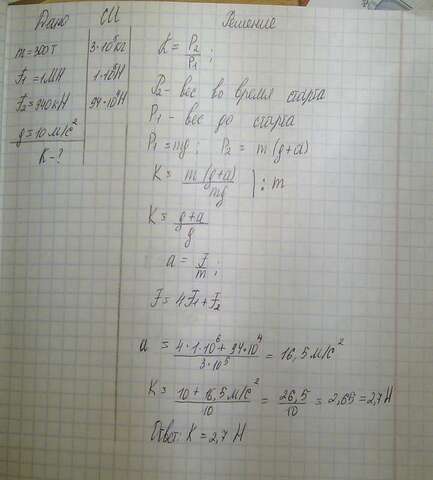 Дано СИ Решение
m = 300 т 3·10⁵ кг
F₁ = 1 МН 1·10⁶ Н
F₂ = 940 кН 94·10⁴ Н
g = 10 м/с²
K - ?
K = P₂/P₁ ;
P₂ - вес во время старта
P₁ - вес до старта
P₁ = mg ; P₂ = m (g+a)
K = m (g+a)/mg ) : m
K = g+a/g
a = F/m ;
F = 4F₁ + F₂
a = 4·1·10⁶ + 94·10⁴/3·10⁵ = 16,5 м/с²
K = 10 + 16,5 м/с²/10 = 26,5/10 = 2,65 = 2,7 Н
Ответ: K = 2,7 Н